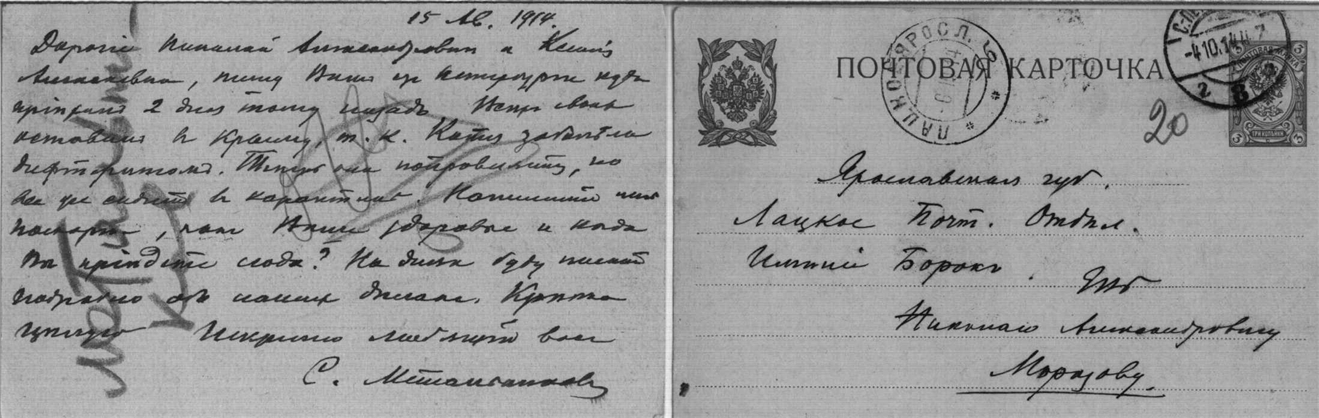 15 Ав. 1914.
Дорогіе Николай Александровичъ и Ксенія
Алексѣевна, пишу Вамъ из Петербурга куда
пріѣхалъ 2 дня тому назадъ
оставилъ в Крыму, т. к. Катя заболѣла
дифтеритомъ. Теперь она поправилась, но
все же сидитъ в карантинѣ. Напишите мнѣ
, какъ Ваше здоровье и когда
Вы пріѣдете сюда? На дняхъ буду писать
подробно объ нашихъ дѣлахъ. Крѣпко
цѣлую Искренно любящій васъ
С.
ПОЧТОВАЯ КАРТОЧКА
ЛАЦКОЕ ЯРОСЛ.
-4.10.14
20
Ярославская губ.
Лацкое Почт. Отдѣл.
Имѣніе Борокъ.
ЕВБ
Николаю Александровичу
Морозову.